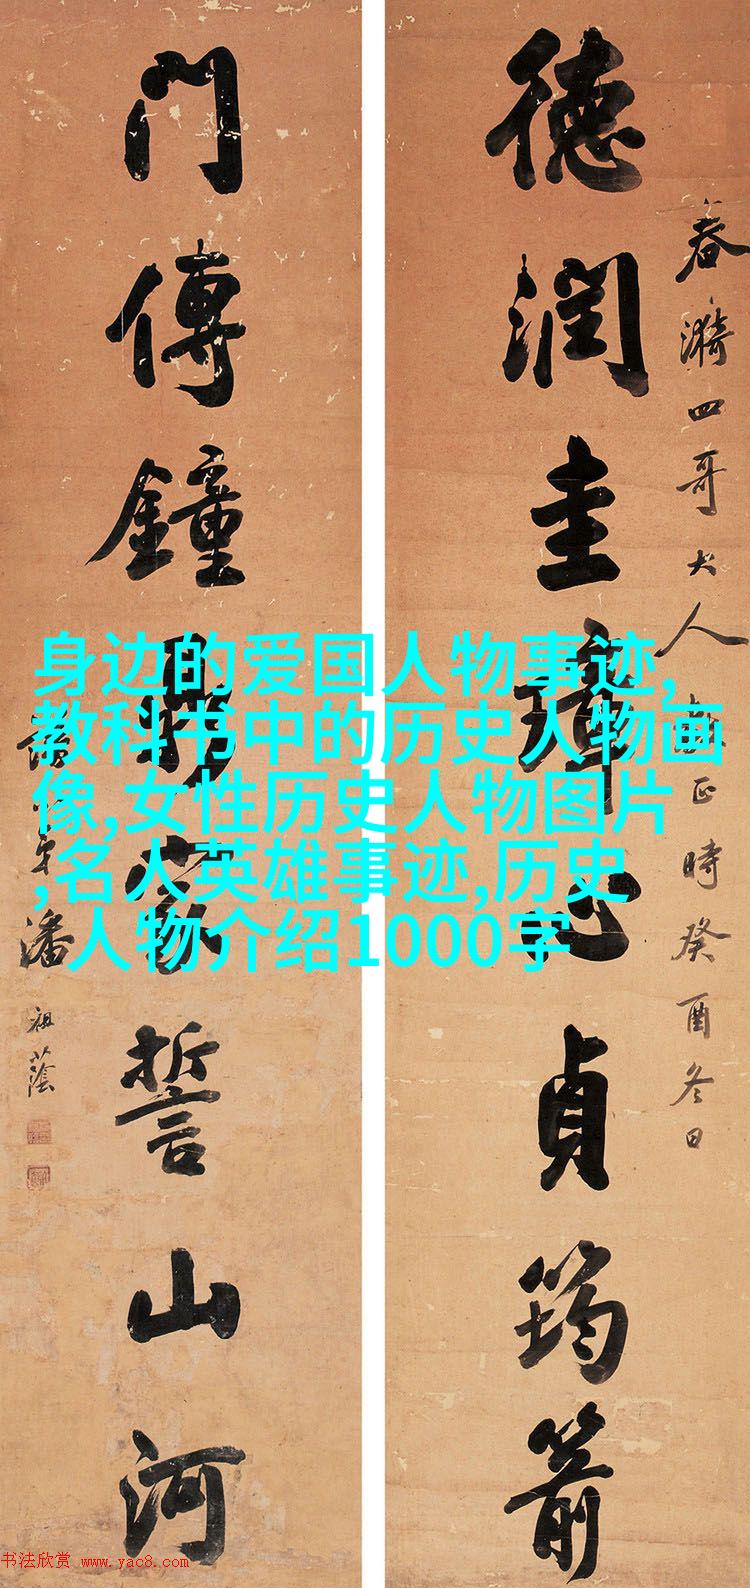 春漪四哥大人正時癸酉冬日
德潤圭璋心貞筠箭
門傳鐘鼎家誓山河
弟潘祖蔭
身边的爱国人物事迹,
教科书中的历史人物画
像,女性历史人物图片
,名人英雄事迹,历史
人物介绍1000字
书法欣赏 www.yac8.com